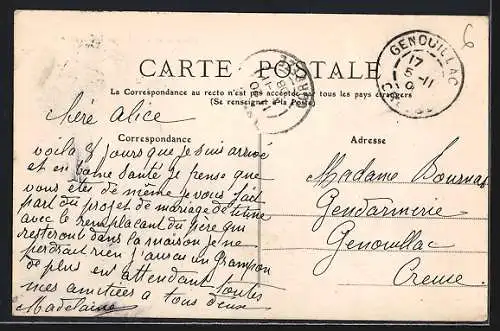 CARTE POSTALE
La Correspondance au recto n'est pas acceptée par tous les pays étrangers
(Se renseigner à la Poste)
GENOUILLAC
17
5-11
6
Chère Alice
Correspondance
voila 8 jours que je suis arrivé
et en bonne santé je pense que
vous êtes de même je vous fait
part du projet de mariage de
avec le remplaçant du père qui
resteront dans la maison je ne
perdrait rien j'aurai un
de plus en attendant toutes
mes amitiées a tous deux
Madelaine
Adresse
Madame Bournas
Gendarmerie
Genouillac
Creuse.